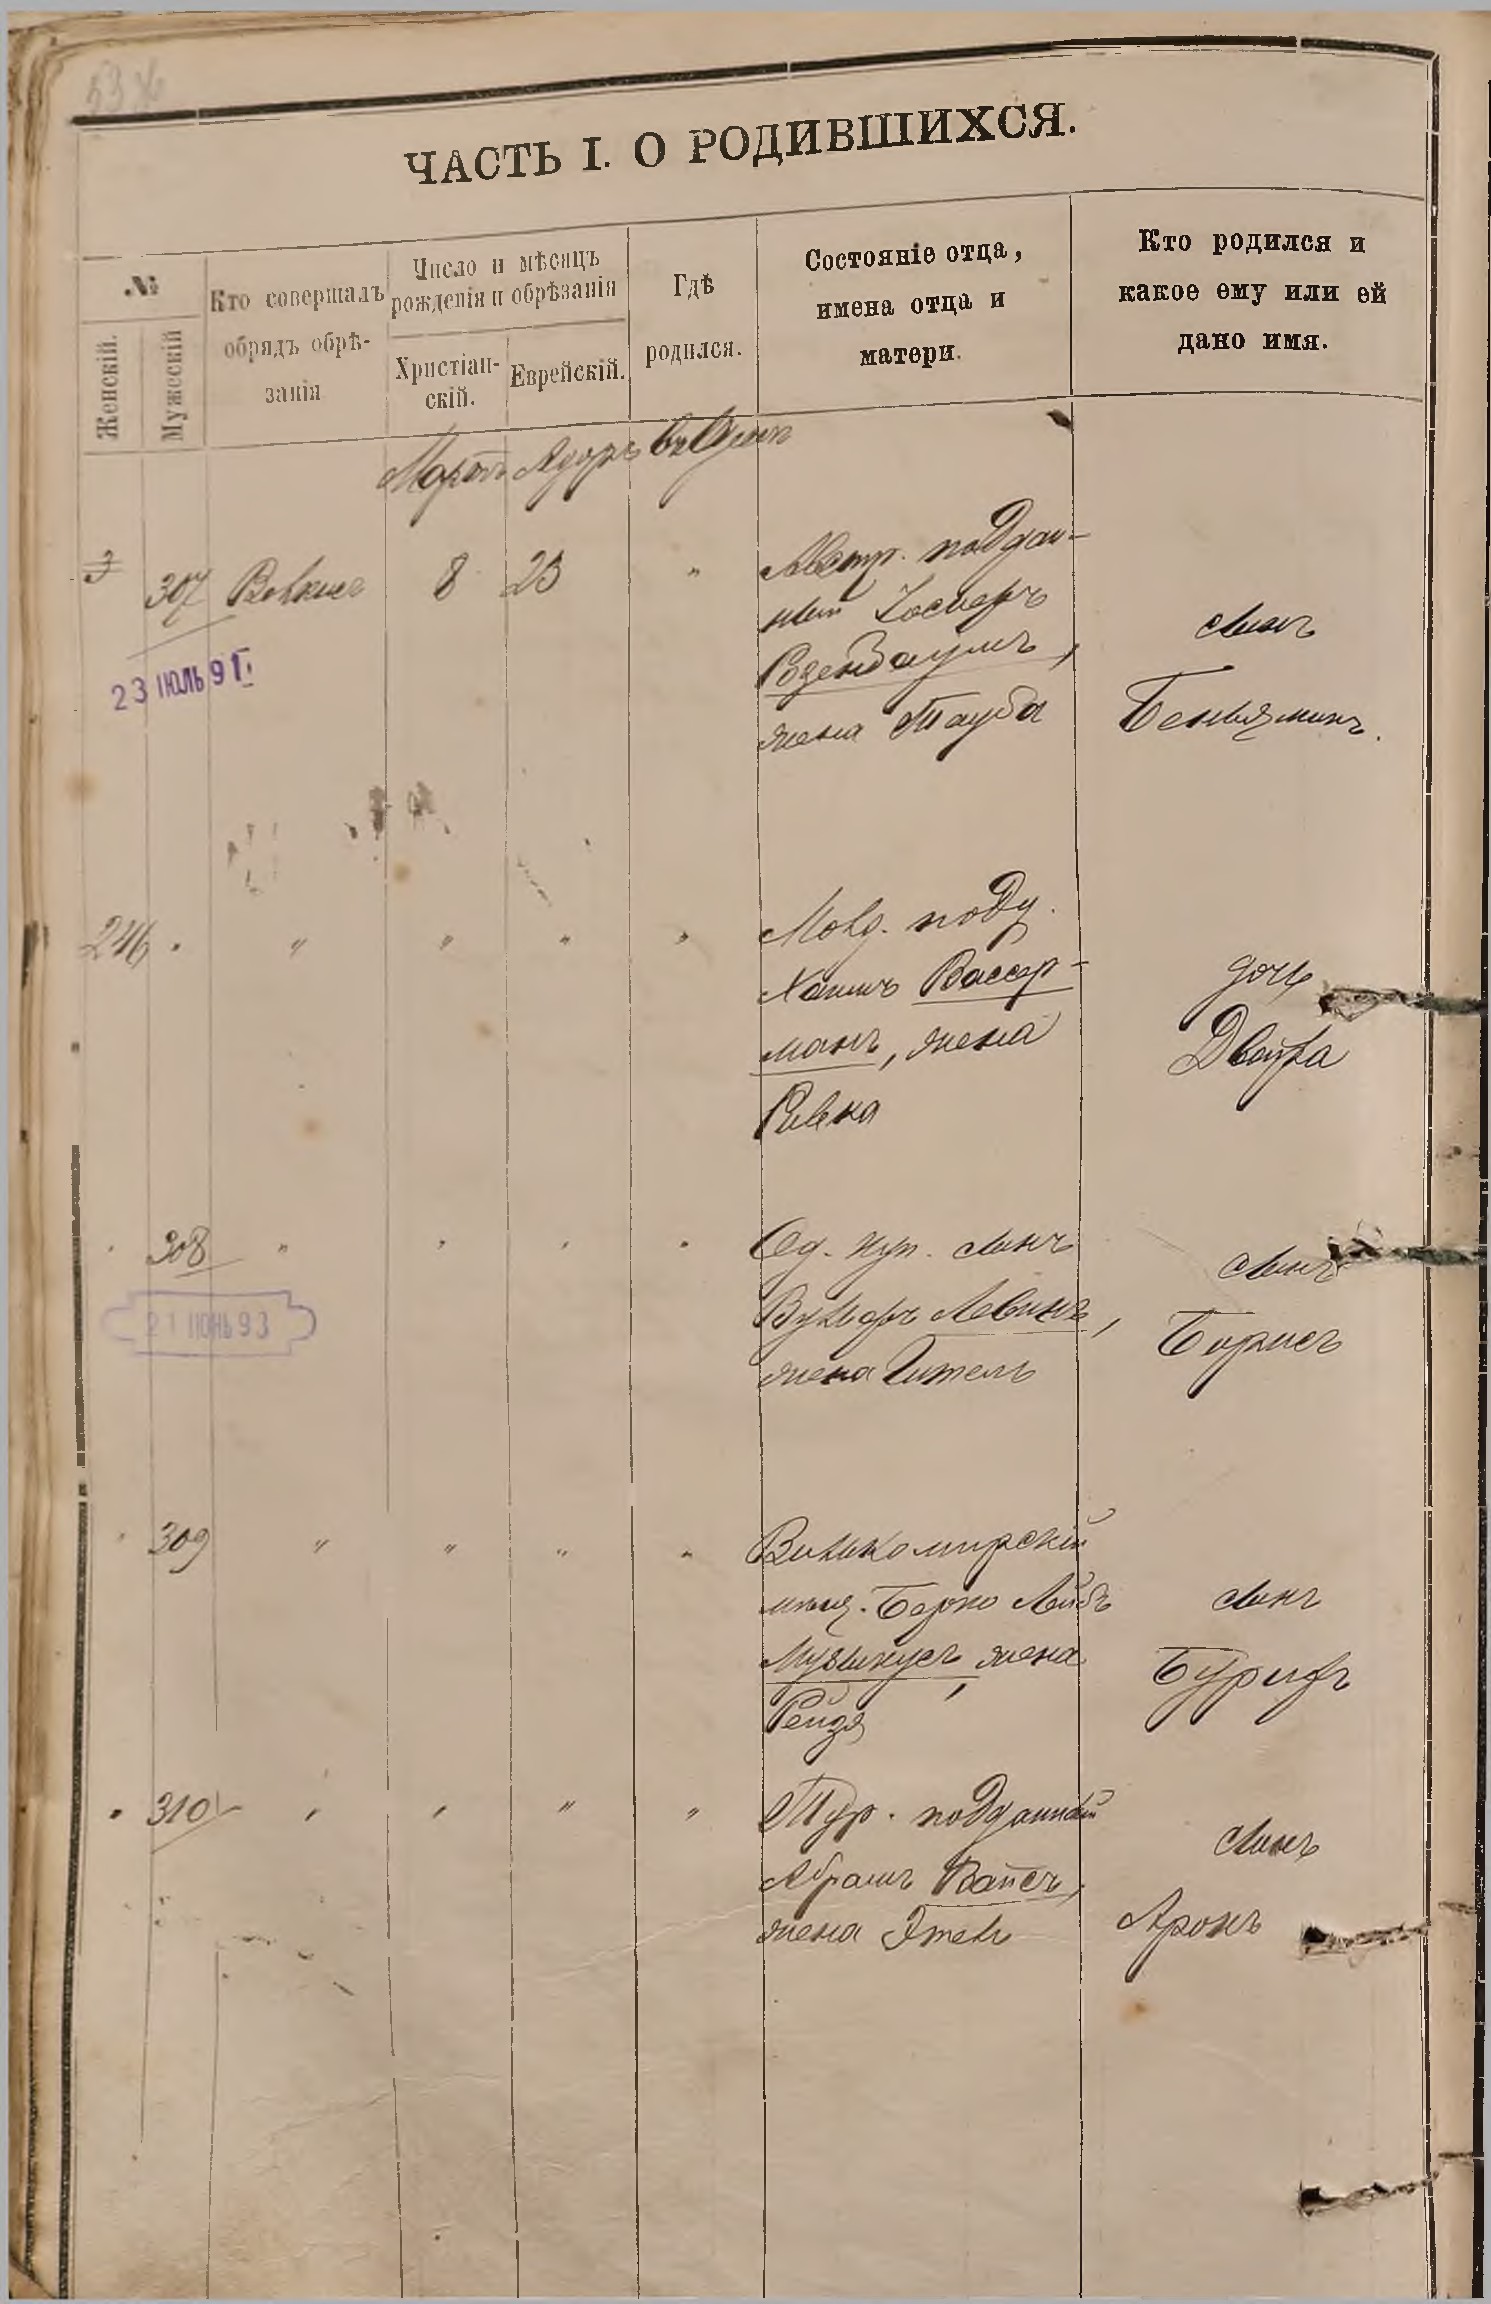 ЧАСТЬ I. О РОДИВШИХСЯ.
№
Женскій.
Мужескій
Кто совершалъ
обрядъ обрѣ-
занія
Число и мѣсяцъ
рожденія и обрѣзанія
Христіан-
скій.
Еврейскій.
Гдѣ
родился.
Состояніе отца,
имена отца и
матери.
Кто родился и
какое ему или ей
дано имя.
Мартъ Адаръ въ
307 8 23 "
Австр. поддан-
ный
Розенбаумъ,
жена Тауба
сынъ
Беньяминъ.
23 ІЮЛЬ 91 Г.
246 " " " " "
Молд. подд.
Хаимъ Вассер-
манъ, жена
Ривка
дочь
Двойра
" 308 " " " "
Од. куп. сынъ
Вульфъ Левинъ,
жена Гитель
сынъ
Борисъ
21 ІЮНЬ 93
" 309 " " " "
Вилькомирскій
мѣщ. Берко Лейбъ
жена
Рейзя
сынъ
" 310 " " " "
Тур. подданный
Абрамъ Вайсъ,
жена Этель
сынъ
Аронъ